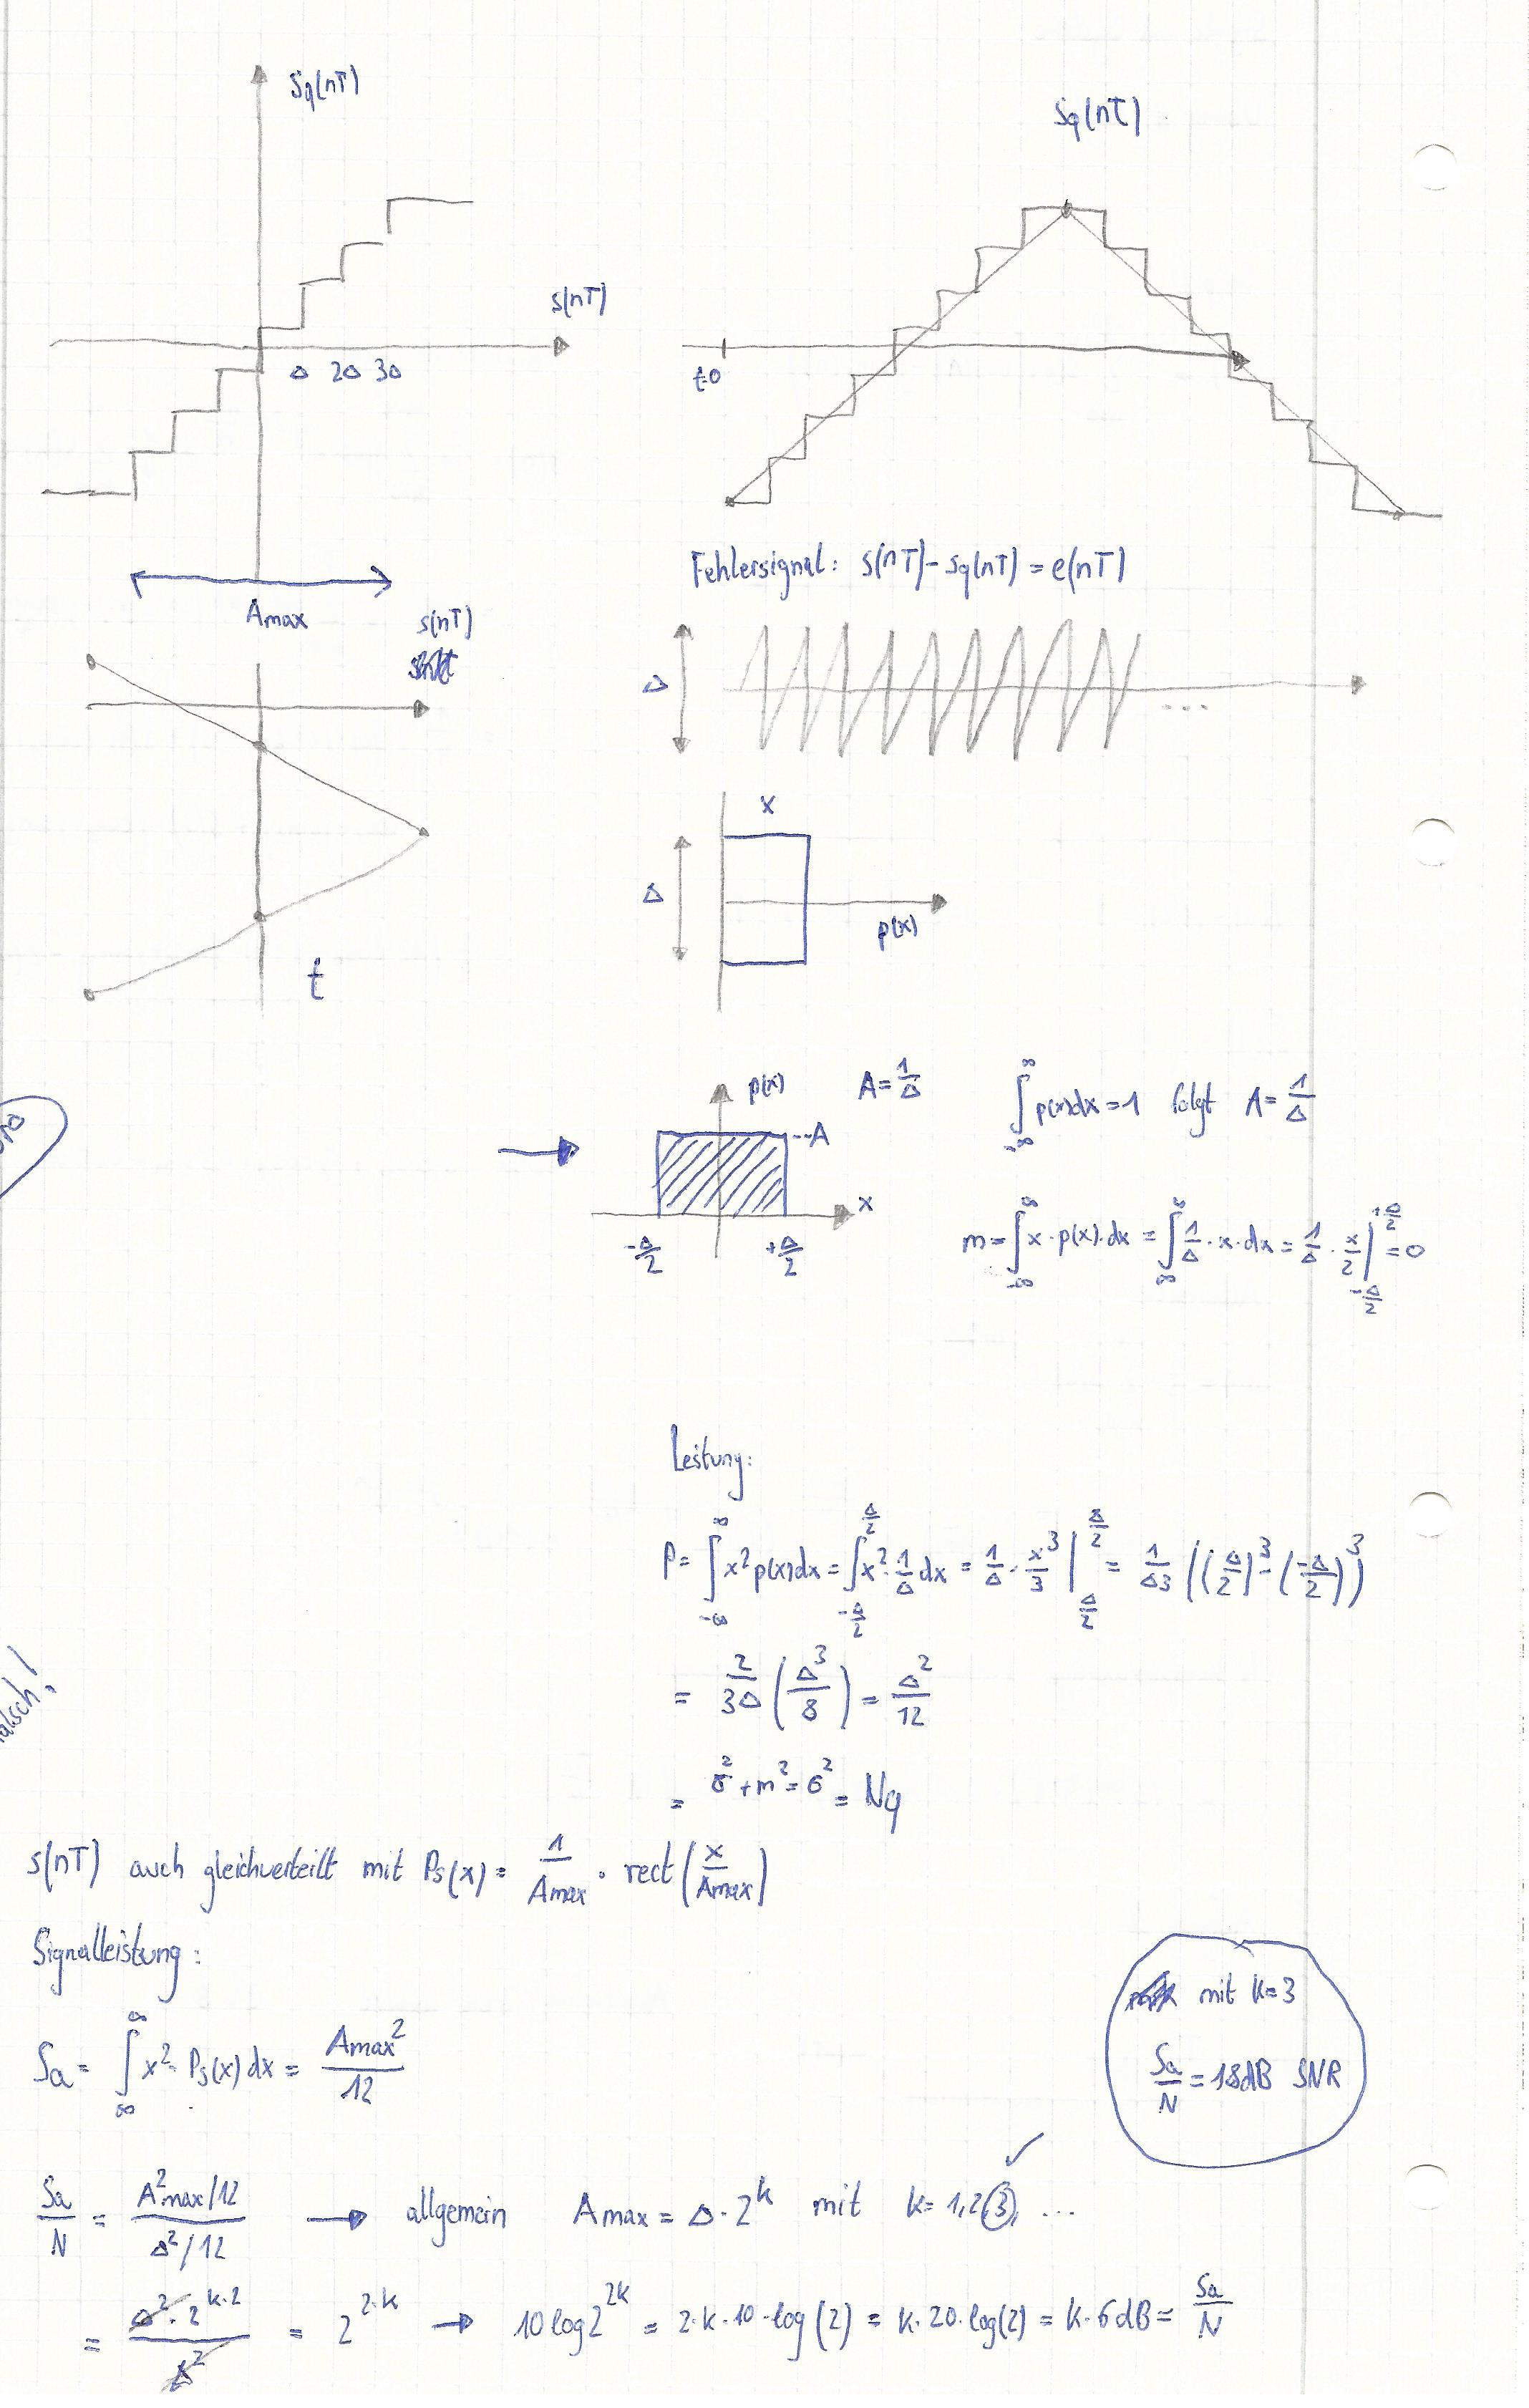 Sq(nT)
Sq(nT)
s(nT)
Δ 2Δ 3Δ
t=0
Amax
Fehlersignal: s(nT) - sq(nT) = e(nT)
s(nT)
Δ
x
Δ
p(x)
t
p(x) A = 1/Δ ∫_{-∞}^{∞} p(x)dx = 1 folgt A = 1/Δ
--A
x
-Δ/2 +Δ/2
m = ∫_{-∞}^{∞} x · p(x) · dx = ∫_{∞}^{∞} 1/Δ · x · dx = 1/Δ · x/2 |_{-Δ/2}^{+Δ/2} = 0
Leistung:
P = ∫_{-∞}^{∞} x² p(x)dx = ∫_{-Δ/2}^{Δ/2} x² · 1/Δ dx = 1/Δ · x³/3 |_{Δ/2}^{Δ/2} = 1/Δ3 ((Δ/2)³ - (-Δ/2)³)
= 2/3Δ (Δ³/8) = Δ²/12
= σ² + m² = σ² = Nq
s(nT) auch gleichverteilt mit Ps(x) = 1/Amax · rect(x/Amax)
Signalleistung:
Sa = ∫_{∞}^{∞} x² · Ps(x) dx = Amax²/12
mit k=3
Sa/N = 18dB SNR
Sa/N = A²max/12 / Δ²/12 → allgemein Amax = Δ · 2^k mit k = 1,2,3, ...
= Δ² · 2^{k·2} / Δ² = 2^{2·k} → 10 log 2^{2k} = 2·k·10·log(2) = k·20·log(2) = k·6dB = Sa/N